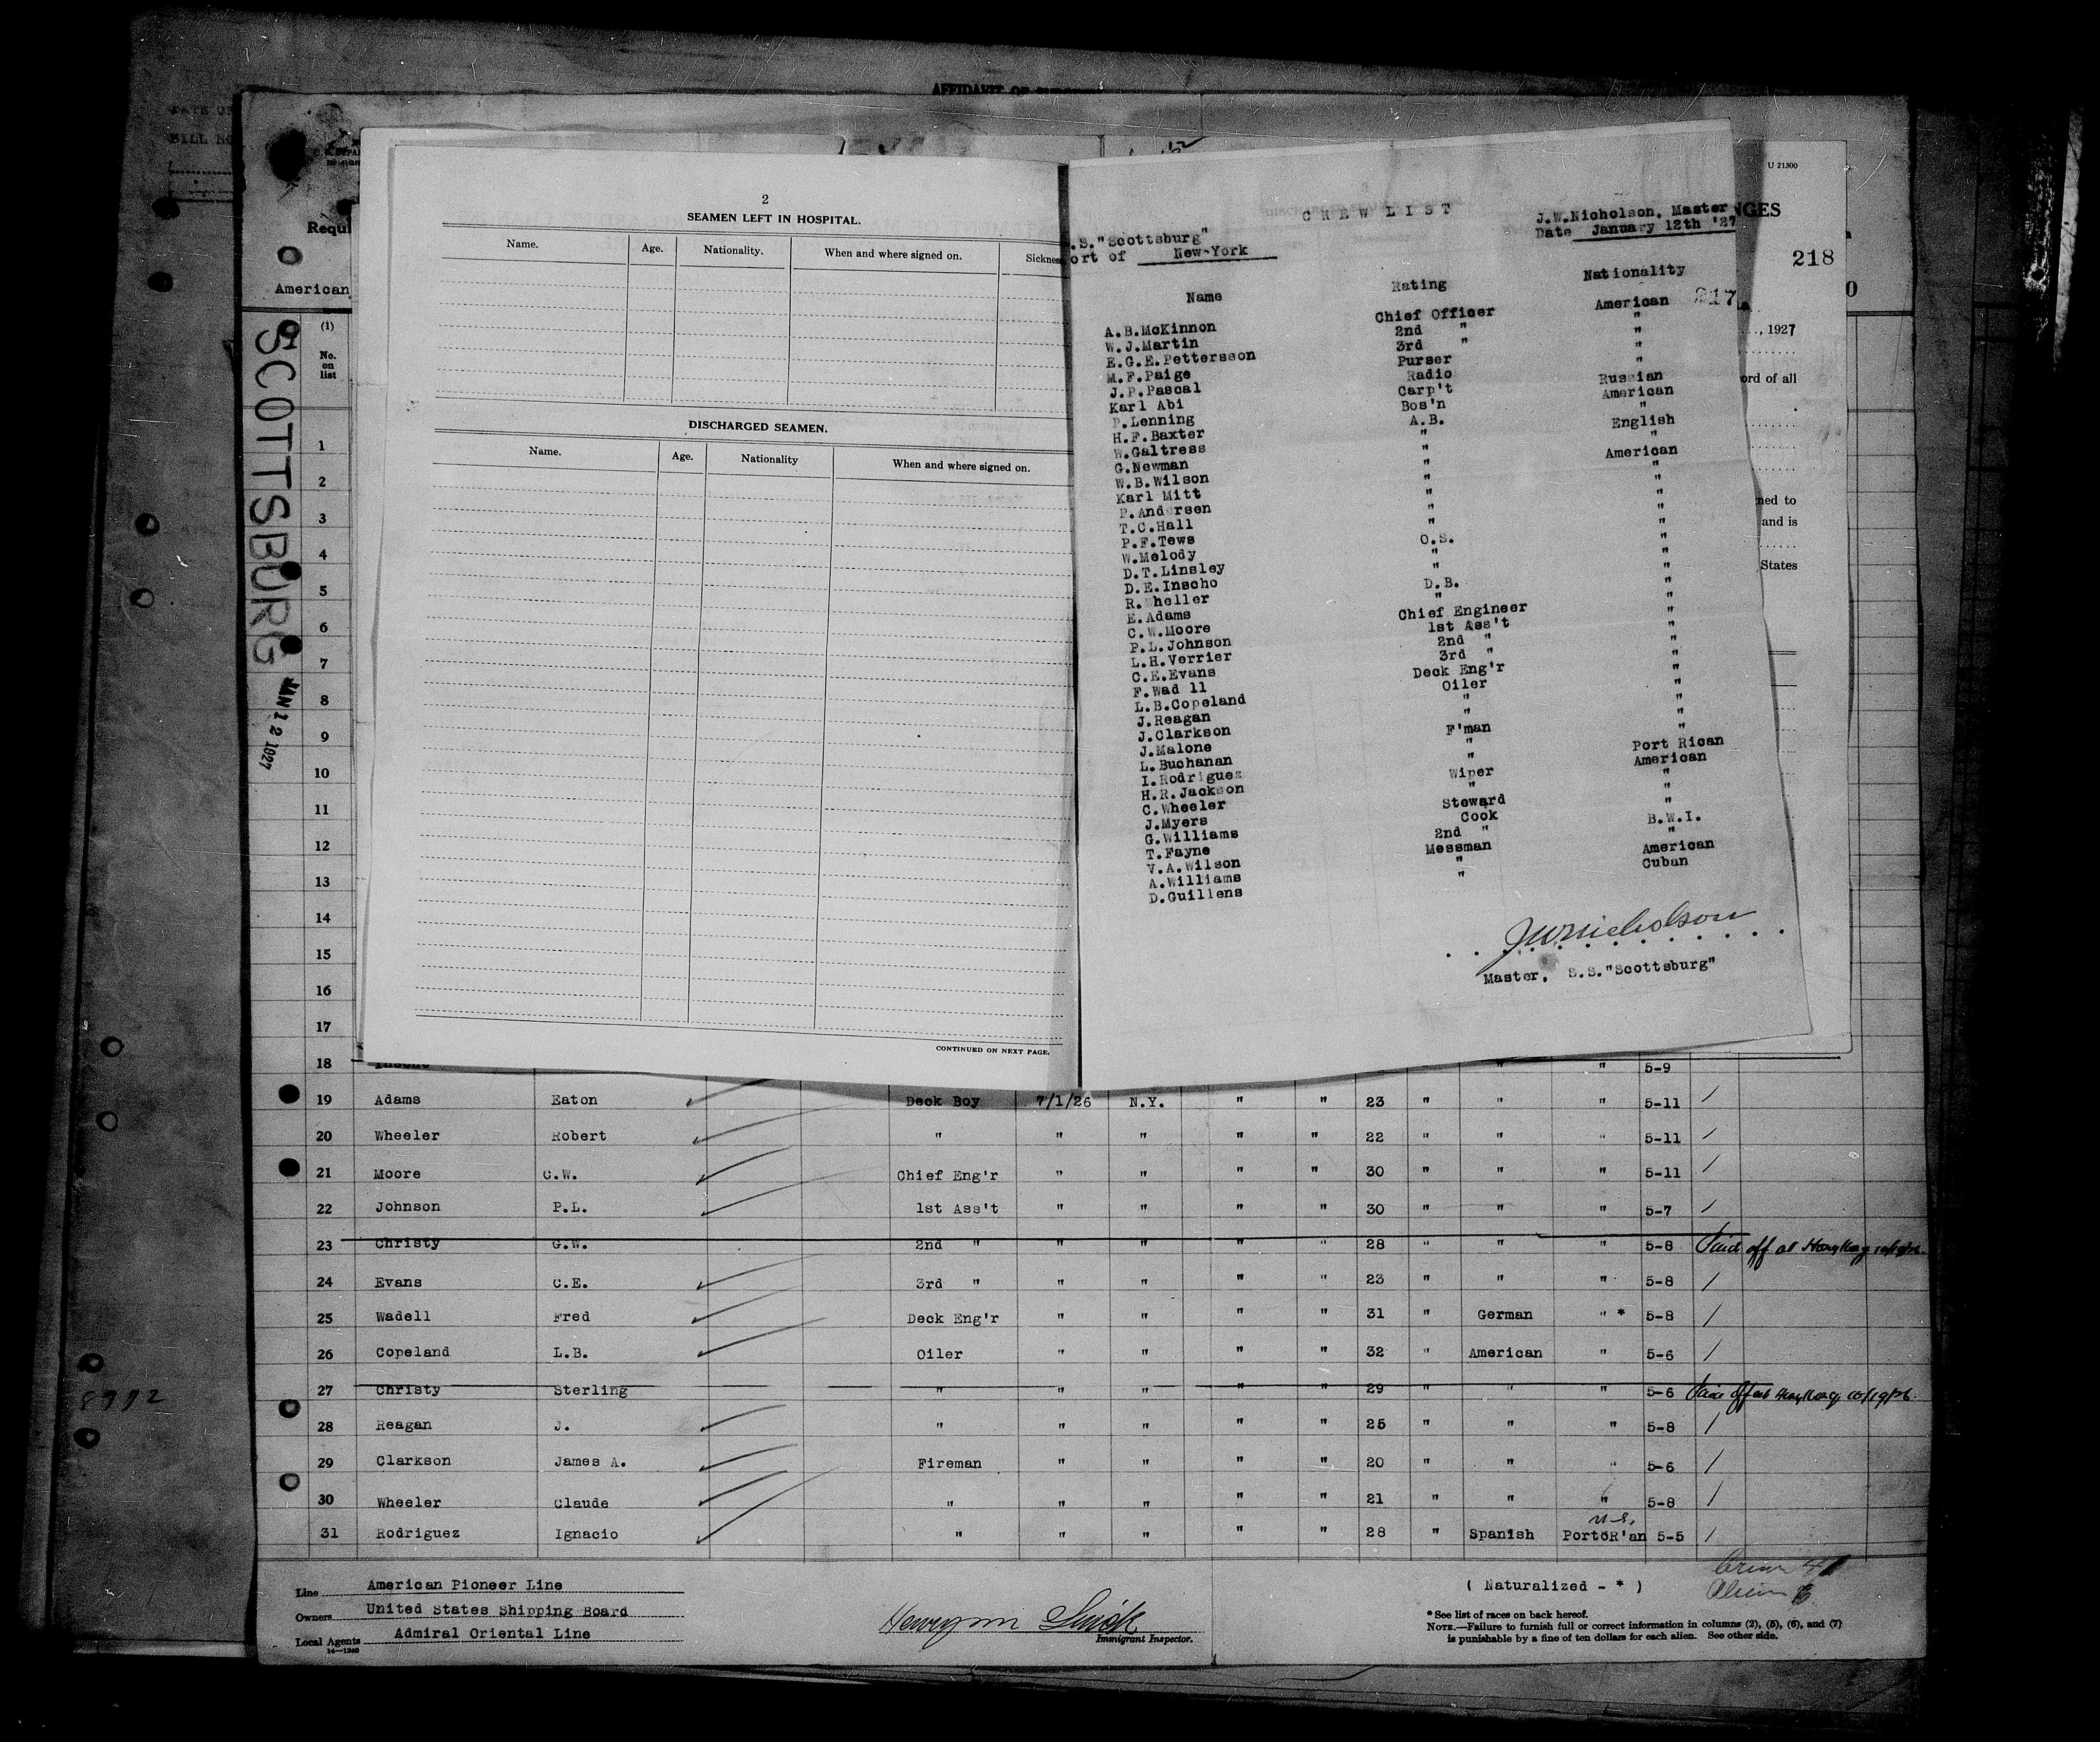 AFFIDAVIT OF
U 21300
218
American
SCOTTSBURG
JAN 12 1927
(1)
No. on list
2
SEAMEN LEFT IN HOSPITAL.
Name. Age. Nationality. When and where signed on.
DISCHARGED SEAMEN.
Name. Age. Nationality When and where signed on.
CONTINUED ON NEXT PAGE.
CREW LIST
J.W.Nicholson, Master
Date January 12th '27
.S."Scottsburg"
ort of New-York
Name Rating Nationality
217
A.B.McKinnon Chief Officer American
W.J.Martin 2nd " "
E.G.E.Pettersson 3rd " "
M.F.Paige Purser "
J.P.Pascal Radio "
Karl Abi Carp't Russian
P.Lenning Bos'n American
H.F.Baxter A.B. "
W.Galtress " English
G.Newman " "
W.B.Wilson " American
Karl Mitt " "
P.Andersen " "
T.C.Hall " "
P.F.Tews " "
W.Melody O.S. "
D.T.Linsley " "
D.E.Inscho " "
R.Wheller D.B. "
E.Adams " "
C.W.Moore Chief Engineer "
P.L.Johnson 1st Ass't "
L.H.Verrier 2nd " "
C.E.Evans 3rd " "
F.Wad ll Deck Eng'r "
L.B.Copeland Oiler "
J.Reagan " "
J.Clarkson " "
J.Malone F'man "
L.Buchanan " "
I.Rodriguez " Port Rican
H.R.Jackson Wiper American
C.Wheeler " "
J.Myers Steward "
G.Williams Cook "
T.Fayne 2nd " B.W.I.
V.A.Wilson Messman "
A.Williams " American
D.Guillens " Cuban
JWNicholson
Master, S.S."Scottsburg"
, 1927
ord of all
ned to
and is
States
1
2
3
4
5
6
7
8
9
10
11
12
13
14
15
16
17
18 " " 5-9
19 Adams Eaton Deck Boy 7/1/26 N.Y. " " 23 " " " 5-11
20 Wheeler Robert " " " " " 22 " " " 5-11
21 Moore C.W. Chief Eng'r " " " " 30 " " " 5-11
22 Johnson P.L. 1st Ass't " " " " 30 " " " 5-7
23 Christy G.W. 2nd " " " " " 28 " " " 5-8 Paid off at HongKong
24 Evans C.E. 3rd " " " " " 23 " " " 5-8
25 Wadell Fred Deck Eng'r " " " " 31 " German " * 5-8
26 Copeland L.B. Oiler " " " " 32 " American " 5-6
27 Christy Sterling " " " " " 29 " " " 5-6 Paid off at HongKong 10/19/26
28 Reagan J. " " " " " 25 " " " 5-8
29 Clarkson James A. Fireman " " " " 20 " " " 5-6
30 Wheeler Claude " " " " " 21 " " " 5-8
31 Rodriguez Ignacio " " " " " 28 " Spanish U.S. PortoR'an 5-5
Line American Pioneer Line
Owners United States Shipping Board
Local Agents Admiral Oriental Line
Immigrant Inspector.
( Naturalized - * )
* See list of races on back hereof.
NOTE.—Failure to furnish full or correct information in columns (2), (5), (6), and (7)
is punishable by a fine of ten dollars for each alien. See other side.